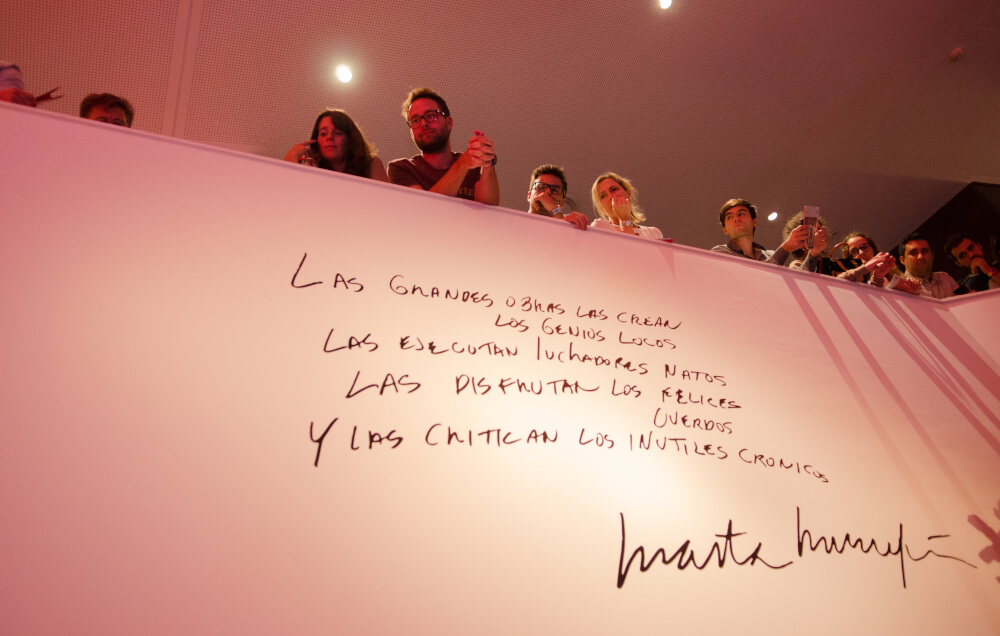 LAS GRANDES OBRAS LAS CREAN
LOS GENIOS LOCOS
LAS EJECUTAN luchadores NATOS
LAS DISFRUTAN LOS FELICES
CUERDOS
Y LAS CRITICAN LOS INUTILES CRONICOS
Marta